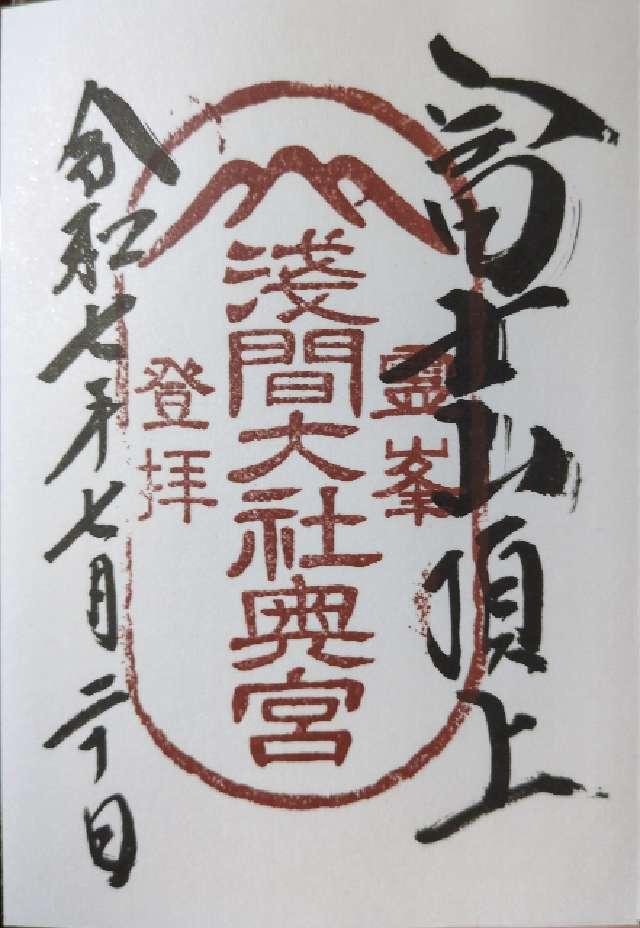 富士山頂上
霊峯
淺間大社奥宮
登拝
令和七年七月二十日